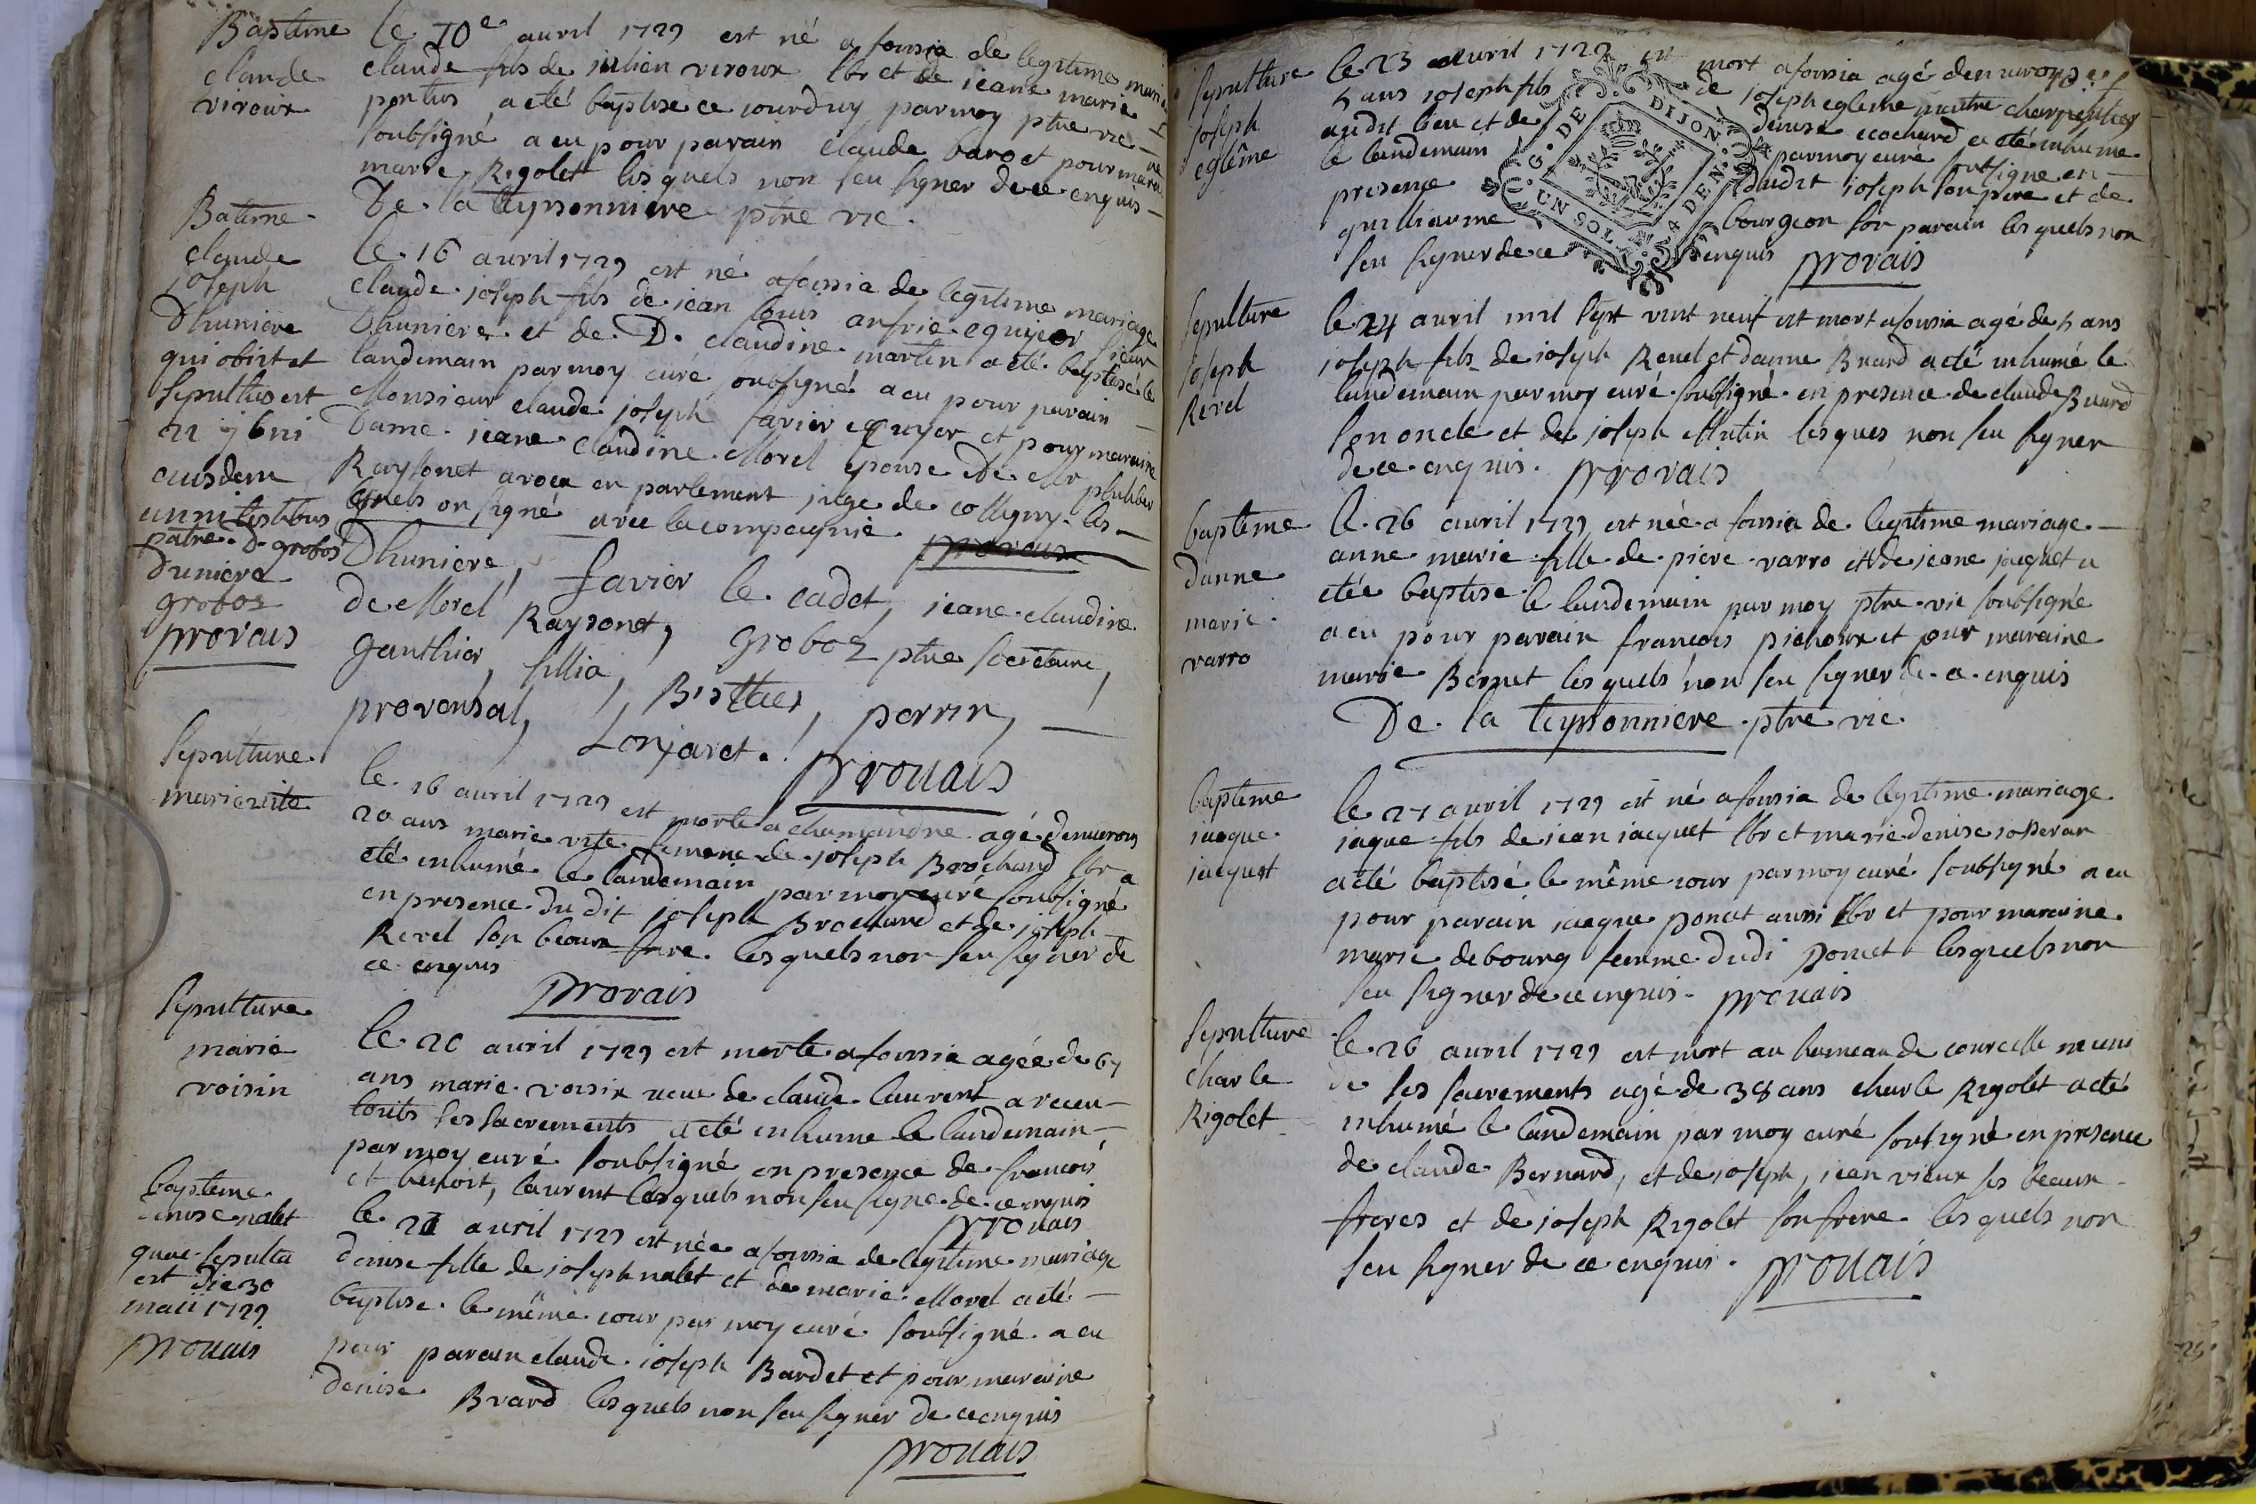 Bapteme
claude
viroux
le 10e avril 1729 est né a foissia de legitime mariage
claude fils de julien viroux lbr et de jeane marie
pontus a eté baptise ce jourduy par moy ptre vic
soubsigné a eu pour parain claude baro et pour maraine
marie Rigolet lesquels non seu signer de ce enquis
De la teyssonniere ptre vic.
Bateme
claude
joseph
Dhuniere
qui obiit et
sepultus est
eiusdem
anni testibus
patre D. grobos
Duniere
groboz
provais
le 16 avril 1729 est né a foissia de legitime mariage
claude joseph fils de jean louis equier sieur
Dhuniere et de D. claudine martin a eté baptisé le
landemain par moy curé soubsigné a eu pour parain
Monsieur claude joseph favier equyer et pour maraine
Dame jeane claudine Morel epouse De Mr philiber
Raysonet avoca en parlement juge de colligny les
quels on signé avec la compagnie provais
Dhuniere, favier le cadet, jeane claudine
de Morel Raysonet, groboz ptre societaire,
gauthier, fillia, perrin,
provensal, Lonjaret.
provais
sepulture
marie vite
le 16 avril 1729 est morte a chamandre agé denviron
20 ans marie vite femme de joseph Brochand lbr a
eté inhumé le landemain par moy curé soubsigné
en presence du dit joseph Brochand et de joseph
Revel son beaux frere lesquels non seu signer de
ce enquis
provais
sepulture
marie
voisin
le 20 avril 1729 est morte a foissia agée de 67
ans marie voisin veue de claude laurent a receu
touts ses sacrements a eté inhume le landemain
par moy curé soubsigné en presence de francois
et benoit, laurent lesquels non seu signe de ce enquis
provais
bapteme
denise nalet
quae sepulta
est die 30
maii 1729
provais
le 21 avril 1729 est née a foissia de legitime mariage
denise fille de joseph nalet et de marie Morel a eté
baptise le même jour par moy curé soubsigné a eu
pour parain claude joseph Bardet et pour maraine
denise Brard lesquels non seu signer de ce enquis
provais
sepulture
joseph
eglême
le 23 avril 1729 est mort a foissia agé denviron
5 ans joseph fils de joseph egleme maitre charpentier
audit lieu et de denise ecochard a eté inhume
le landemain par moy curé soubsigne en
presence dudit joseph son pere et de
guilliaume bourgeon son parain lesquels non
seu signer de ce enquis provais
G. DE DIJON.
UN SOL 4 DEN.
sepulture
joseph
Revel
le 24 avril mil sept vint neuf est mort a foissia agé de 5 ans
joseph fils de joseph Revel et danne Buard a eté inhumé le
landemain par moy curé soubsigné en presence de claude Buard
son oncle et de joseph Mutin lesques non seu signer
de ce enquis. provais
bapteme
danne
marie
varro
le 26 avril 1729 est née a foissia de legitime mariage
anne marie fille de piere varro et de jeane jacquet a
etée baptise le landemain par moy ptre vic soubsigné
a eu pour parain francois pichoux et pour maraine
marie Bernet les quels non seu signer de ce enquis
De la teyssonniere ptre vic.
bapteme
jacque
jacquet
le 27 avril 1729 est né a foissia de legitime mariage
jaque fils de jean jacquet lbr et marie denise josseran
a eté baptisé le même jour par moy curé soubsigné a eu
pour parain jacque poncet aussi lbr et pour maraine
marie debourg femme dudi poncet lesquels non
seu signer de ce enquis. provais
sepulture
charle
Rigolet
le 26 avril 1729 est mort au hameau de courcelle muni
de ses sacrements agé de 38 ans charle Rigolet a eté
inhumé le landemain par moy curé soubsigné en presence
de claude Bernard, et de joseph, jean vieux ses beaux
freres et de joseph Rigolet son frere lesquels non
seu signer de ce enquis. provais